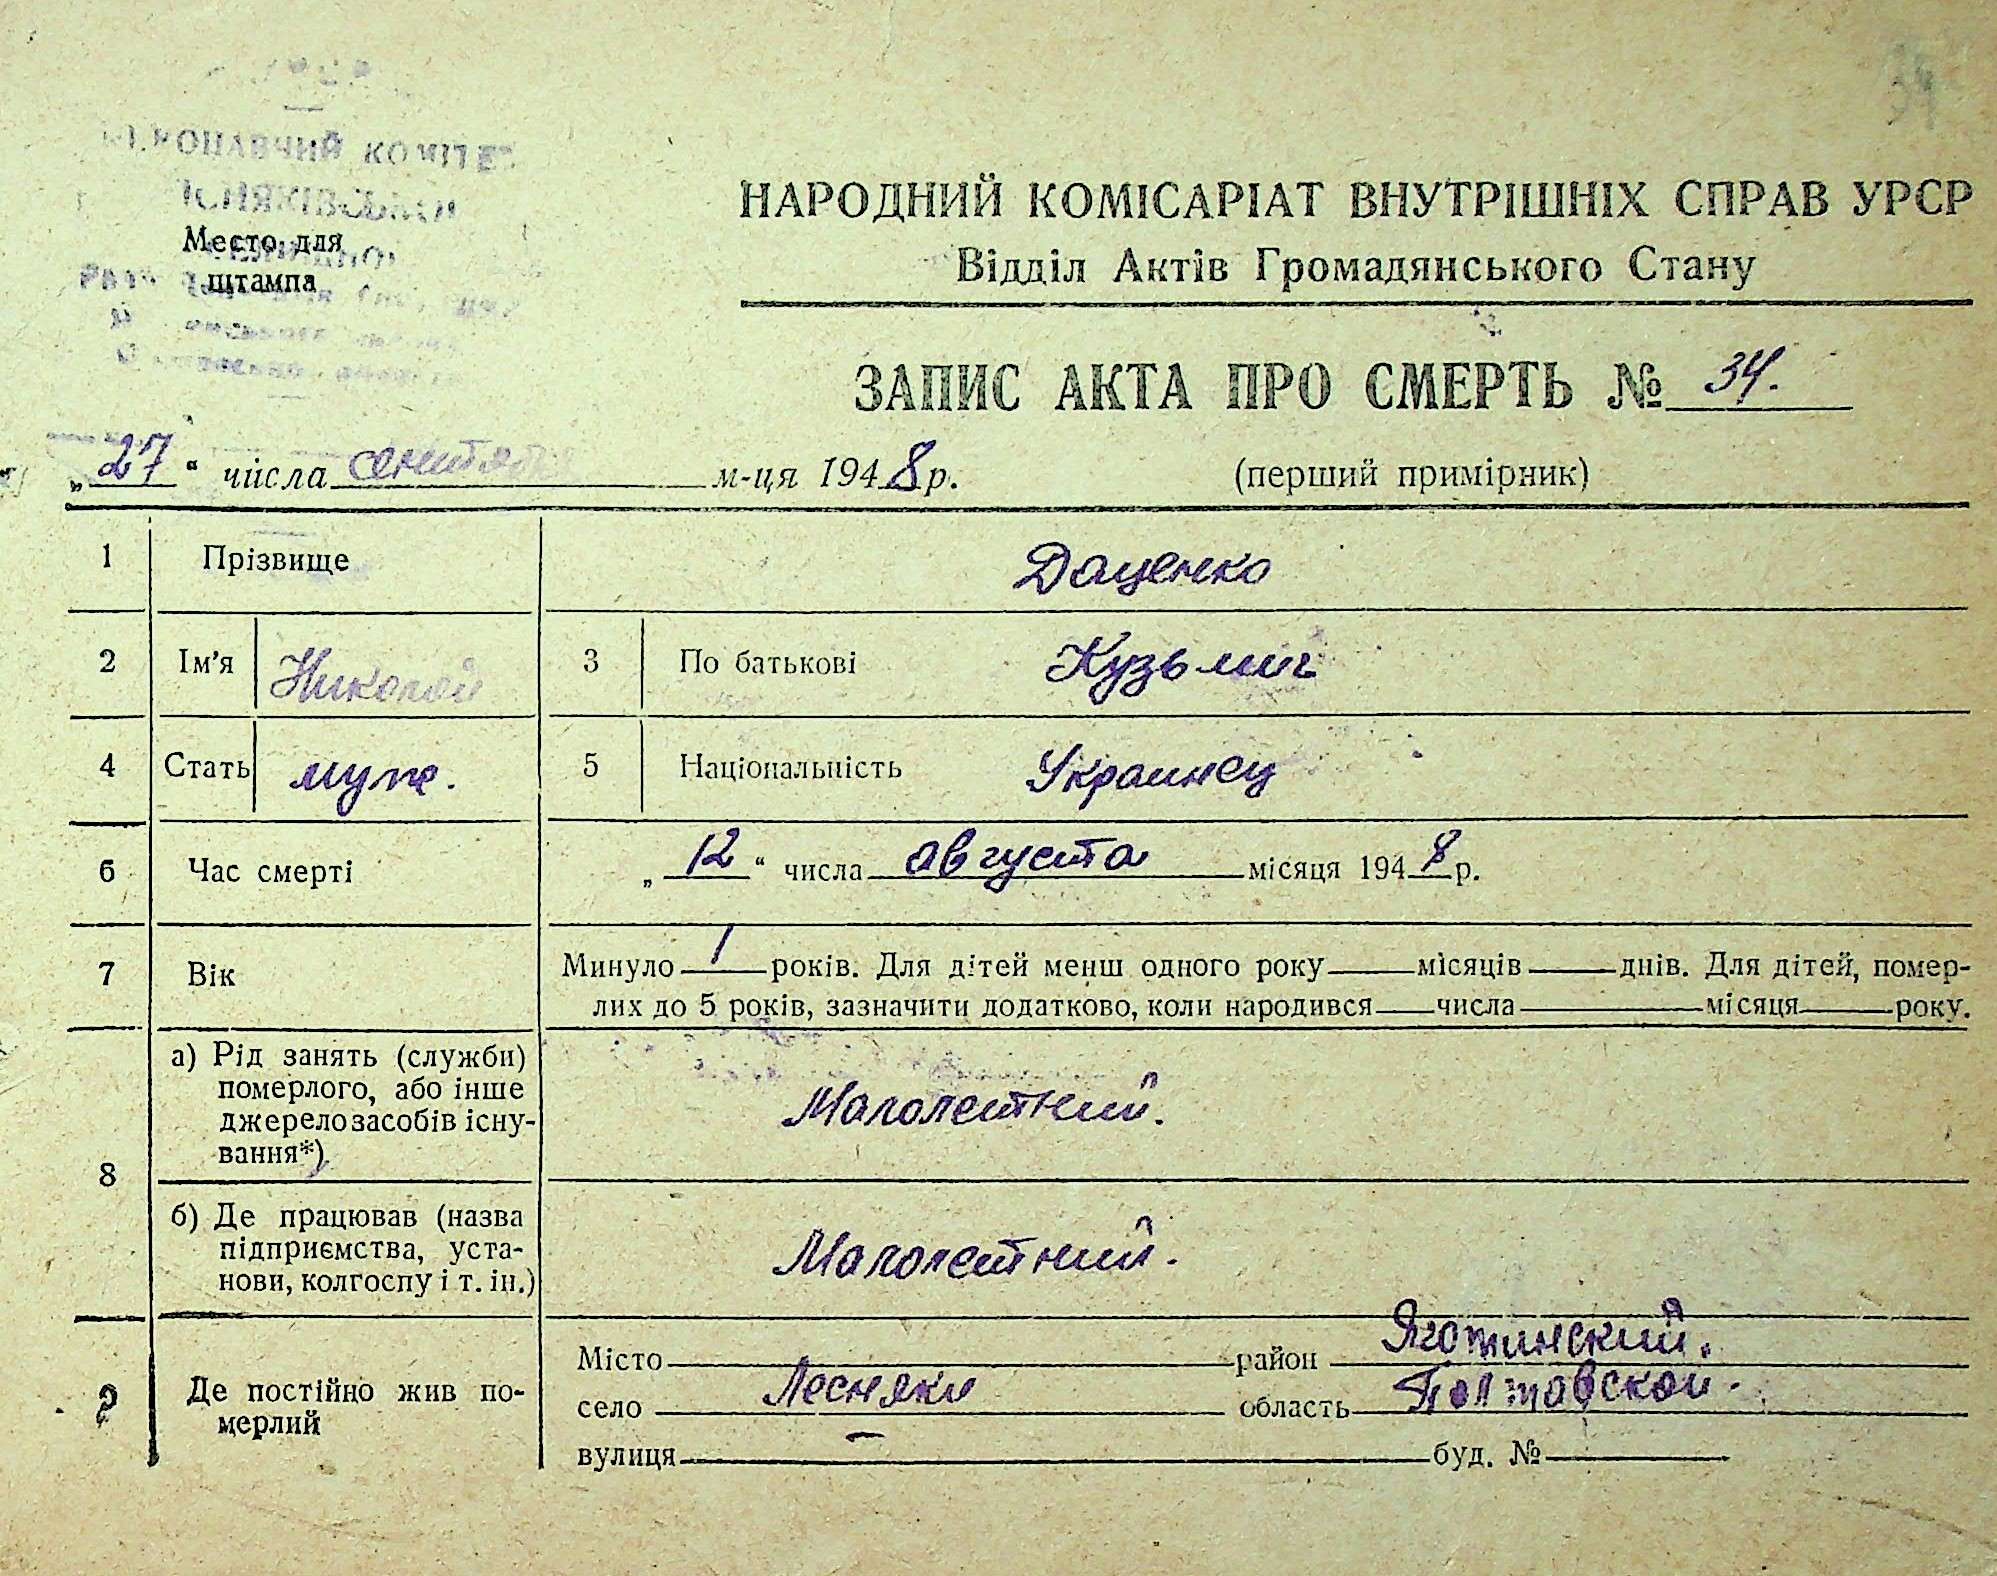 КОМІТЕТ
Место для
штампа
НАРОДНИЙ КОМІСАРІАТ ВНУТРІШНІХ СПРАВ УРСР
Відділ Актів Громадянського Стану
ЗАПИС АКТА ПРО СМЕРТЬ № 34.
„27“ числа сентября м-ця 1948 р. (перший примірник)
1 Прізвище Даценко
2 Ім'я Николай 3 По батькові Кузьмич
4 Стать муж. 5 Національність Украинец
6 Час смерті „12“ числа августа місяця 1948 р.
7 Вік Минуло 1 років. Для дітей менш одного року місяців днів. Для дітей, помер-
лих до 5 років, зазначити додатково, коли народився числа місяця року.
8 а) Рід занять (служби)
померлого, або інше
джерело засобів існу-
вання*)
Малолетний.
б) Де працював (назва
підприємства, уста-
нови, колгоспу і т. ін.)
Малолетний.
9 Де постійно жив по-
мерлий
Місто район Яготинский.
село Лесняки область Полтавской.
вулиця — буд. №